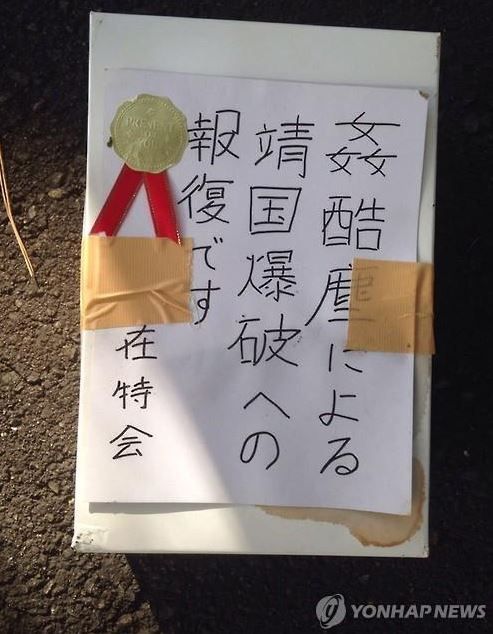 姦酷塵による
靖国爆破への
報復です
在特会
A
PRESENT
FOR
YOU
YONHAP NEWS